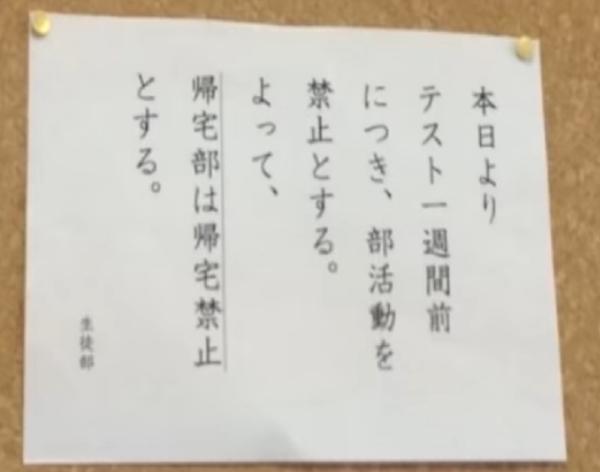 本日より
テスト一週間前
につき、部活動を
禁止とする。
よって、
帰宅部は帰宅禁止
とする。
生徒部